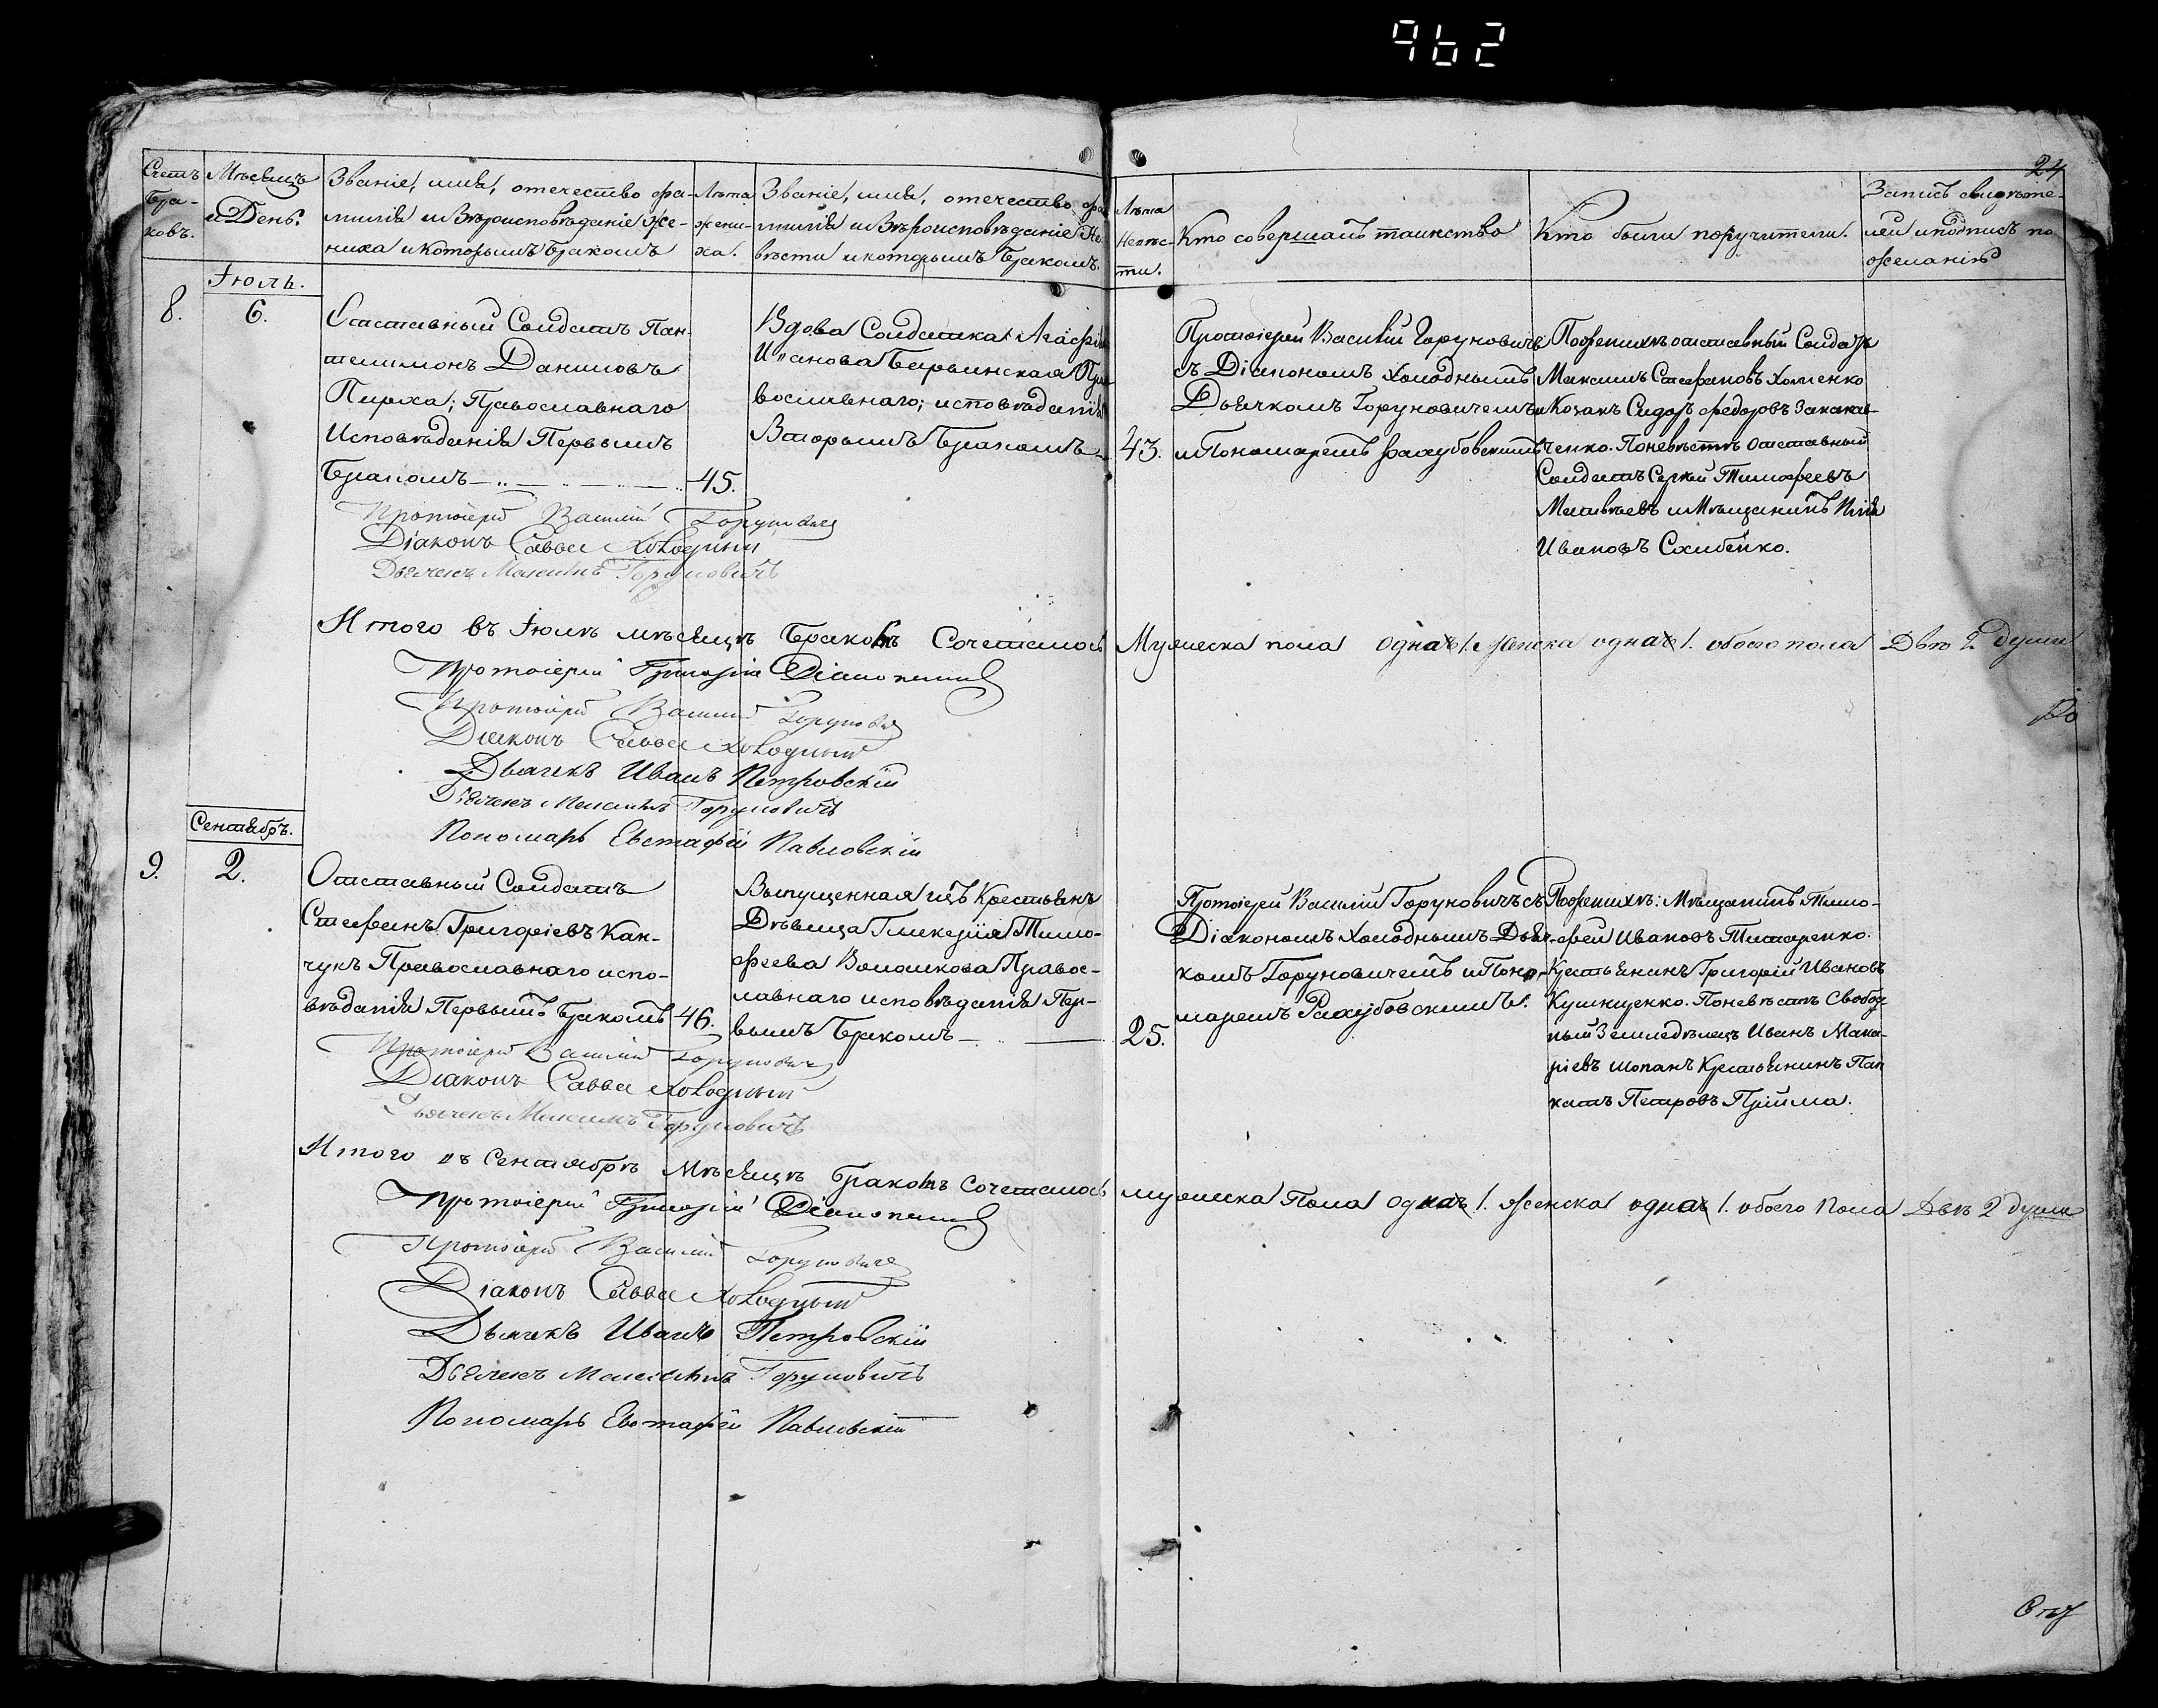 962
24
Счетъ Бра-
ковъ.
Мѣсяцъ
и День.
Званіе, имя, отечество фа-
милія и Вѣроисповѣданіе Же-
ниха и которымъ Бракомъ
Лѣта
жени-
ха.
Званіе, имя, отечество фа
милія и Вѣроисповѣданіе Не
вѣсты и которымъ Бракомъ.
Лѣта
Невѣс-
ты.
Кто совершалъ таинство
Кто были поручители.
Запись свидѣте-
лей и подпись по
желанію
Іюль.
8.
6.
Отставный Солдатъ Пан-
телимонъ Даниловъ
Пироха; Православнаго
Исповѣданія Первымъ
Бракомъ
45.
Вдова Солдатка Агафія
Иванова Барвинская Пра
вославнаго; исповѣданія
Вторымъ Бракомъ
43.
Протоіерей Василій Горуновичъ
съ Діакономъ Холоднымъ
Дьячкомъ Горуновичемъ
и Пономаремъ
По женихѣ отставный Солдатъ
Максимъ Стефановъ Хоменко
и Козакъ Сидоръ Федоровъ
ченко. По невѣстѣ Отставный
Солдатъ Сергѣй Тимофеевъ
Матвѣевъ и Мѣщанинъ Илія
Ивановъ Скибенко.
Протоіерей Василій Горуновичъ
Діаконъ Савва Холодный
Дьячекъ Максимъ Горуновичъ
Итого въ Іюлѣ мѣсяцѣ Браковъ Сочеталось Мужеска пола одна 1. Женска одна 1. обоего пола Двѣ 2 души
Протоіерей Григорій
Протоіерей Василій Горуновичъ
Діаконъ Савва Холодный
Дьячекъ Иванъ Петровскій
Дьячекъ Максимъ Горуновичъ
Пономарь Евстафій Павловскій
Сентябрь.
9.
2.
Отставный Солдатъ
Стефанъ Григоріевъ Кан-
чукъ Православнаго испо-
вѣданія Первымъ Бракомъ
46.
Выпущенная изъ Крестьянъ
Дѣвица Гликерія Тимо-
феева Волошкова Правос-
лавнаго исповѣданія Пер-
вымъ Бракомъ
25.
Протоіерей Василій Горуновичъ съ
Діакономъ Холоднымъ Дьяч-
комъ Горуновичемъ и Поно-
маремъ
По женихѣ: Мѣщанинъ Тимо-
фей Ивановъ Титаренко.
Крестьянинъ Григорій Ивановъ
Кушниренко. По невѣстѣ Свобод
ный Земледѣлецъ Иванъ Мака-
ріевъ Шопанъ Крестьянинъ Пан
катъ Петровъ Пріима.
Протоіерей Василій Горуновичъ
Діаконъ Савва Холодный
Дьячекъ Максимъ Горуновичъ
Итого въ Сентябрѣ Мѣсяцѣ Браковъ Сочеталось мужеска Пола одна 1. Женска одна 1. обоего Пола Двѣ 2 души
Протоіерей Григорій
Протоіерей Василій Горуновичъ
Діаконъ Савва Холодный
Дьячекъ Иванъ Петровскій
Дьячекъ Максимъ Горуновичъ
Пономарь Евстафій Павловскій